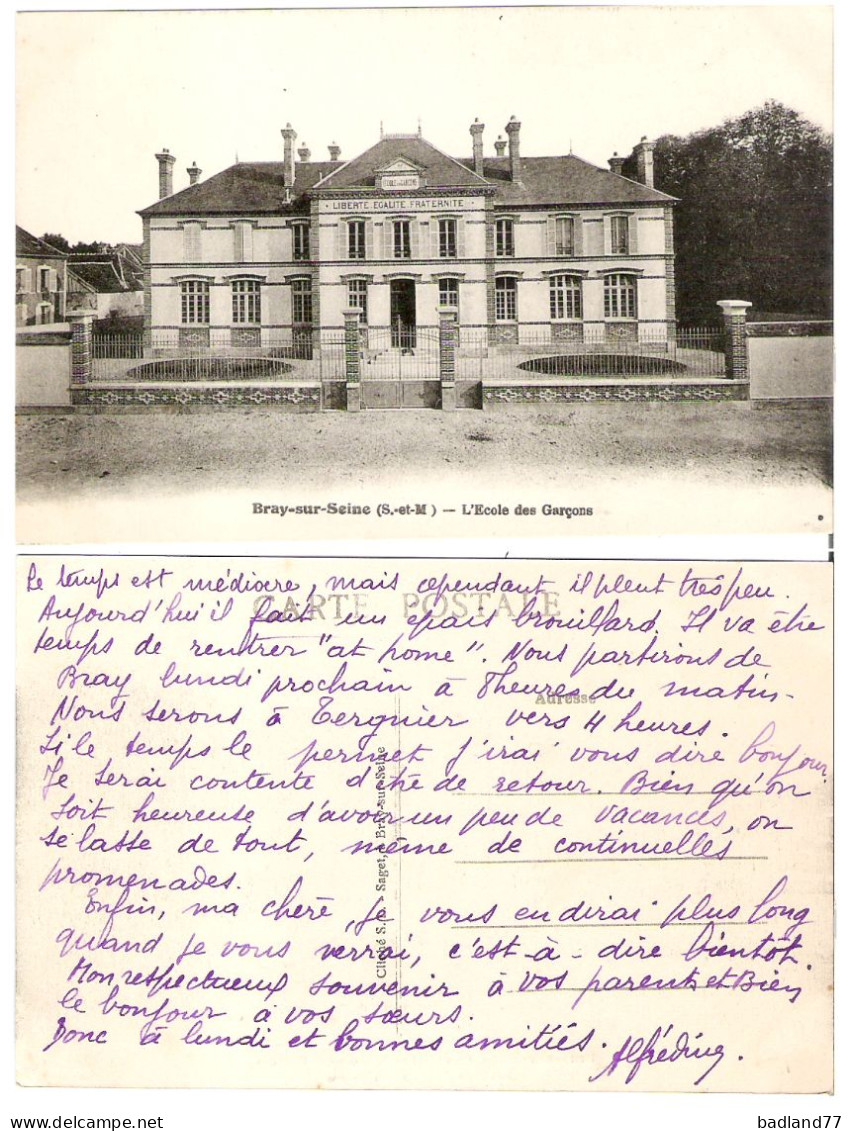 ECOLE DE GARÇONS
· LIBERTE EGALITE FRATERNITE ·
Bray-sur-Seine (S.-et-M) — L'Ecole des Garçons
CARTE POSTALE
Adresse
Le temps est médiocre, mais cependant il pleut très peu.
Aujourd'hui il fait un épais brouillard. Il va être
temps de rentrer "at home". Nous partirons de
Bray lundi prochain à 8 heures du matin -
Nous serons à Tergnier vers 4 heures.
Si le temps le permet j'irai vous dire bonjour.
Je serai contente d'être de retour. Bien qu'on
soit heureuse d'avoir un peu de vacances, on
se lasse de tout, même de continuelles
promenades.
Enfin, ma chère, je vous en dirai plus long
quand je vous verrai, c'est-à-dire bientôt.
Mon respectueux souvenir à vos parents et Bien
le bonjour à vos sœurs.
Donc à lundi et bonnes amitiés. Alfrédine.
Saget, à Bray-sur-Seine
badland77